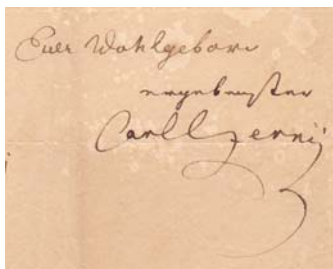 Euer Wohlgeborn
ergebenster
Carl Czerny